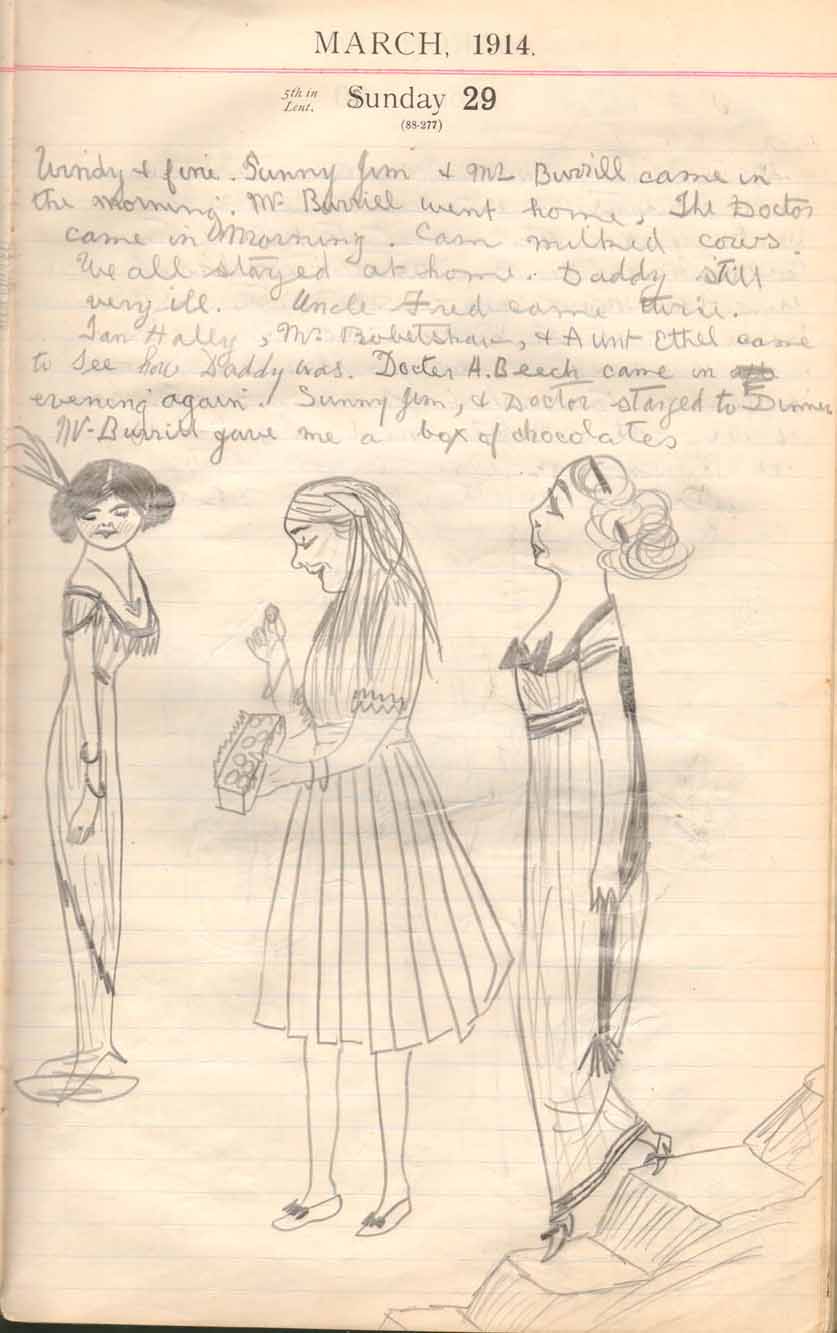 MARCH, 1914.
5th in
Lent.
Sunday 29
(88-277)
Windy & fine. Sunny Jim & Mr Burrill came in
the morning. Mr Burrill went home, The Doctor
came in Morning. Cam milked cows.
We all stayed at home. Daddy still
very ill. Uncle Fred came
Ian Hally, Mr & Aunt Ethel came
to see how Daddy was. Docter A. Beech came in
evening again. Sunny Jim, & Doctor stayed to Dinner
Mr Burrill gave me a box of chocolates